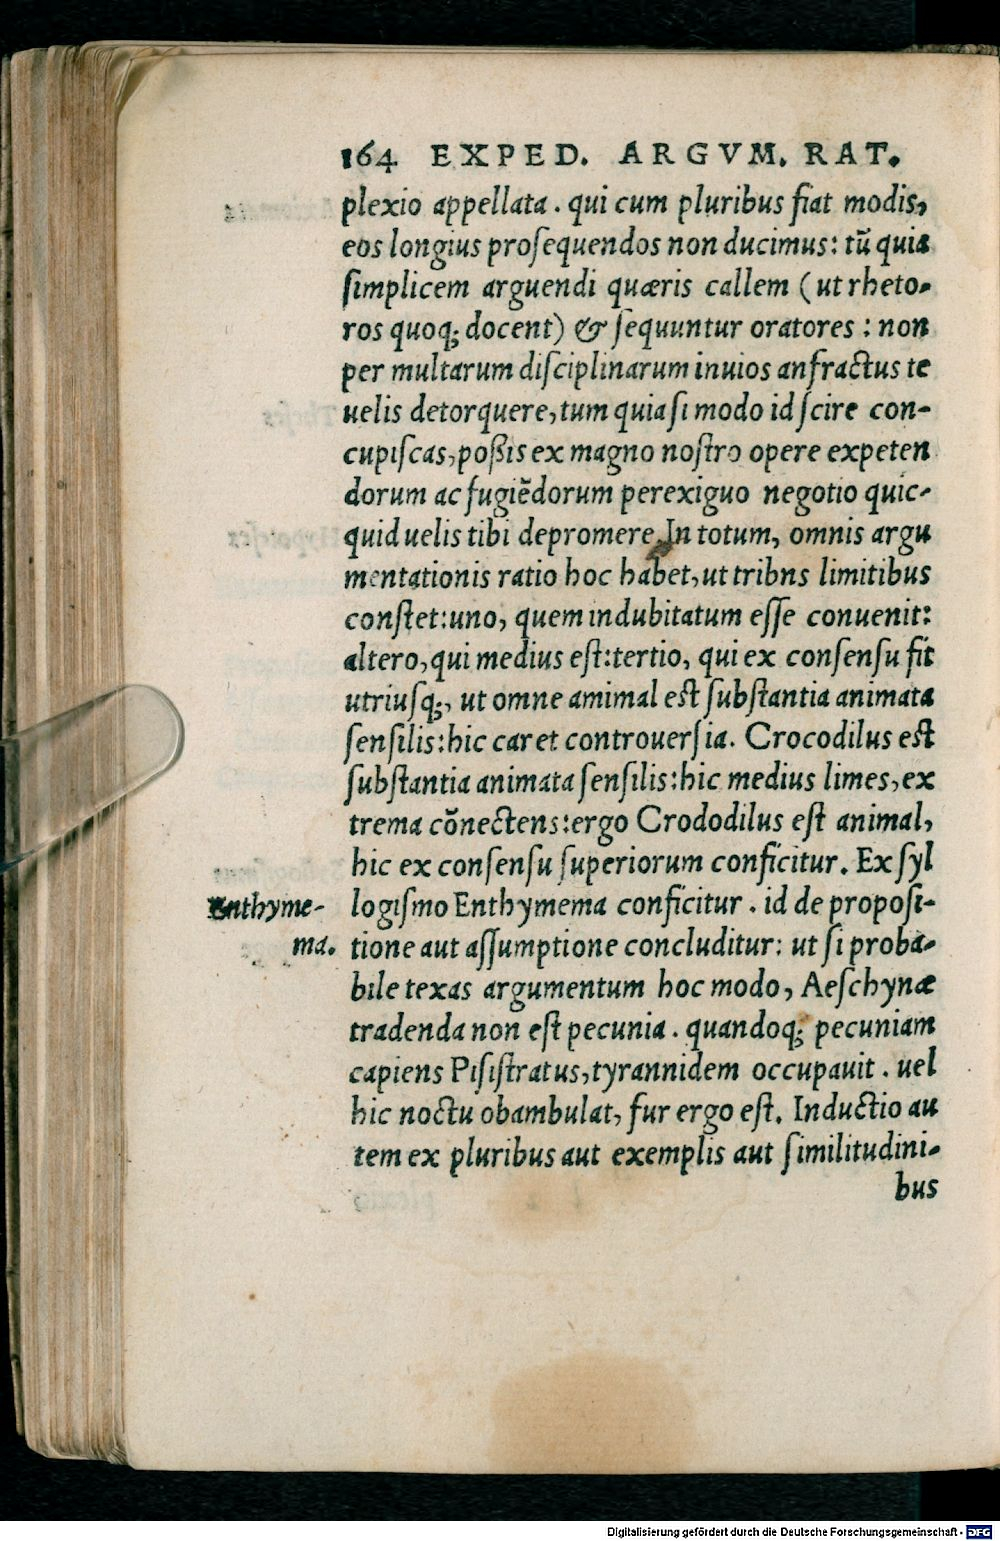 164 EXPED. ARGVM. RAT.
plexio appellata. qui cum pluribus fiat modis,
eos longius proſequendos non ducimus: tũ quia
ſimplicem arguendi quæris callem (ut rheto-
ros quoq; docent) & ſequuntur oratores: non
per multarum diſciplinarum inuios anfractus te
uelis detorquere, tum quia ſi modo id ſcire con-
cupiſcas, poßis ex magno noſtro opere expeten
dorum ac fugiẽdorum perexiguo negotio quic-
quid uelis tibi depromere. In totum, omnis argu
mentationis ratio hoc habet, ut tribns limitibus
conſtet: uno, quem indubitatum eſſe conuenit:
altero, qui medius eſt: tertio, qui ex conſenſu fit
utriuſq;, ut omne amimal eſt ſubſtantia animata
ſenſilis: hic caret controuerſia. Crocodilus eſt
ſubſtantia animata ſenſilis: hic medius limes, ex
trema cõnectens: ergo Crododilus eſt animal,
hic ex conſenſu ſuperiorum conficitur. Ex ſyl
Enthyme-
ma.
logiſmo Enthymema conficitur. id de propoſi-
tione aut aſſumptione concluditur: ut ſi proba-
bile texas argumentum hoc modo, Aeſchynæ
tradenda non eſt pecunia. quandoq; pecuniam
capiens Piſiſtratus, tyrannidem occupauit. uel
hic noctu obambulat, fur ergo eſt. Inductio au
tem ex pluribus aut exemplis aut ſimilitudini-
bus
Digitalisierung gefördert durch die Deutsche Forschungsgemeinschaft - DFG